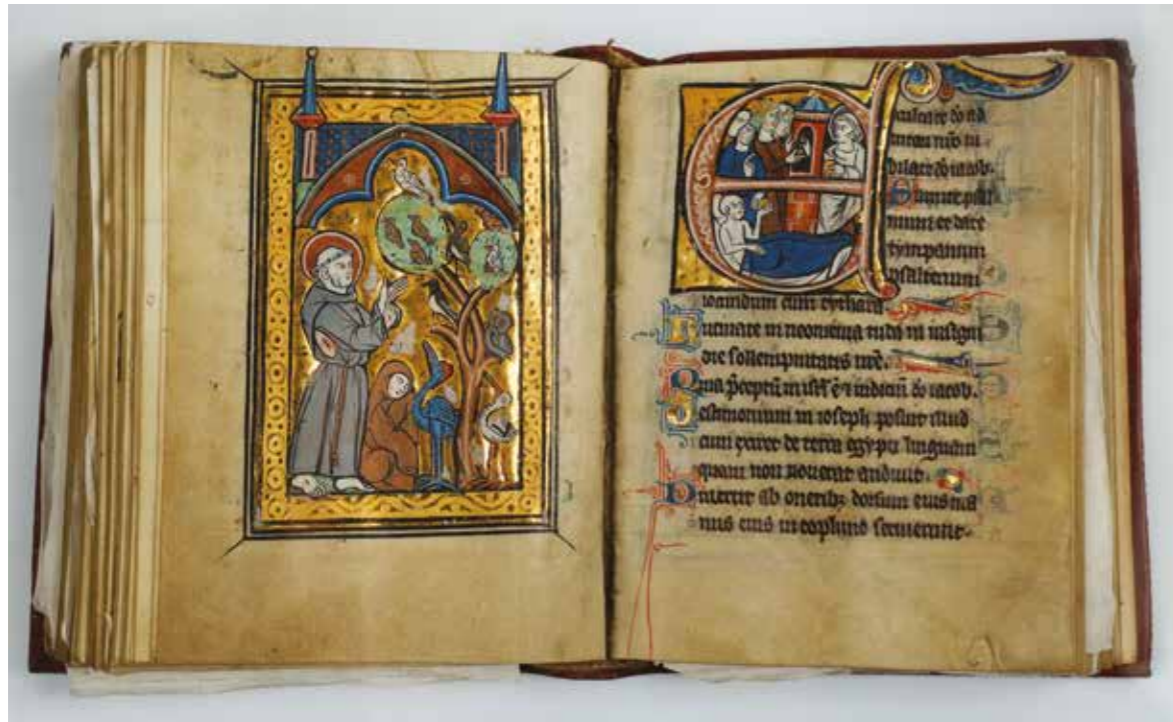 Exultate dō ad
iutori nr̄o iu
bilate dō iacob.
Sumite psal
mum et date
tympanum
psalterium
iocundum cum cythara.
Bucinate in neomenia tuba in insigni
die sollempnitatis nr̄e.
Quia p̄ceptū in isrl̄ ē ⁊ iudiciū dō iacob.
Testimonium in ioseph posuit illud
cum exiret de terra egypti linguam
quam non nouerat audiuit.
Diuertit ab oneribꝫ dorsum eius ma
nus eius in cophino seruierunt.